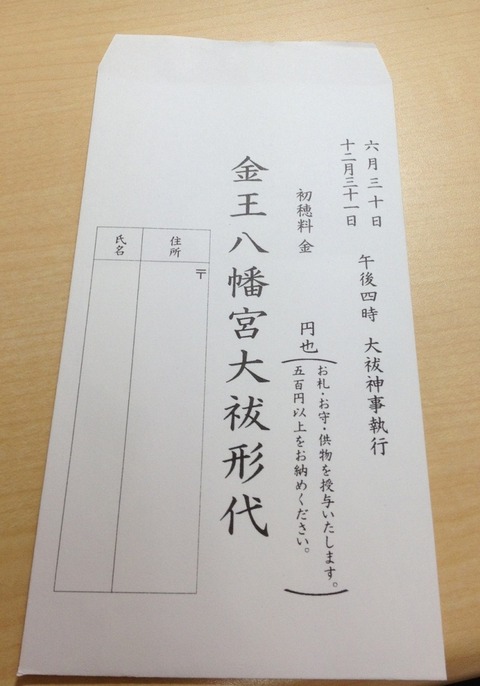 六月三十日
十二月三十一日
午後四時 大祓神事執行
初穂料 金 円也
お札・お守・供物を授与いたします。
五百円以上をお納めください。
金王八幡宮大祓形代
住所
〒
氏名